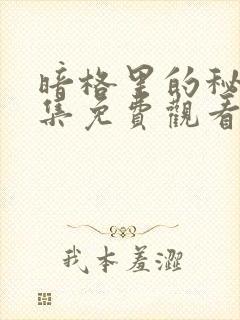 暗格里的秘
集免費觀看
我本羞澀